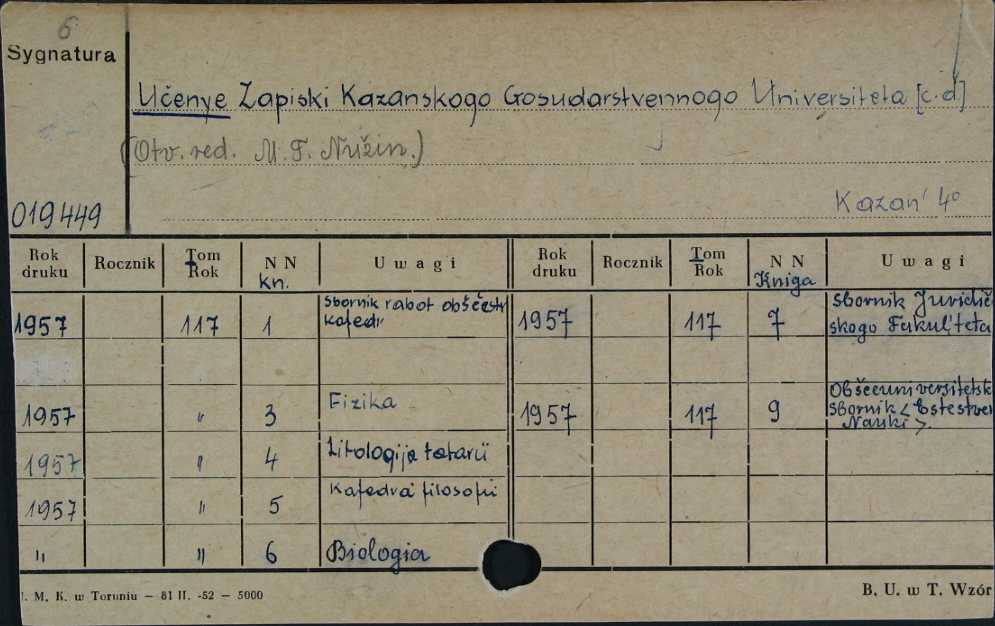 6
Sygnatura
Učenye Zapiski Kazanskogo Gosudarstvennogo Universiteta [c.d]
(Otv. red. M. F. Nužin.)
019449
Kazan' 4°
Rok druku Rocznik Tom Rok N N kn. Uwagi Rok druku Rocznik Tom Rok N N Kniga Uwagi
1957 117 1 Sbornik rabot obščestv kafedr 1957 117 7 Sbornik Juridič
skogo Fakul'teta
1957 " 3 Fizika 1957 117 9 Obščeuniversitetsk
Sbornik < Estestven
Nauki >.
1957 " 4 Litologija tatarii
1957 " 5 Kafedra filosofii
" " 6 Biologia
. M. K. w Toruniu — 81 II. -52 — 5000
B. U. w T. Wzór